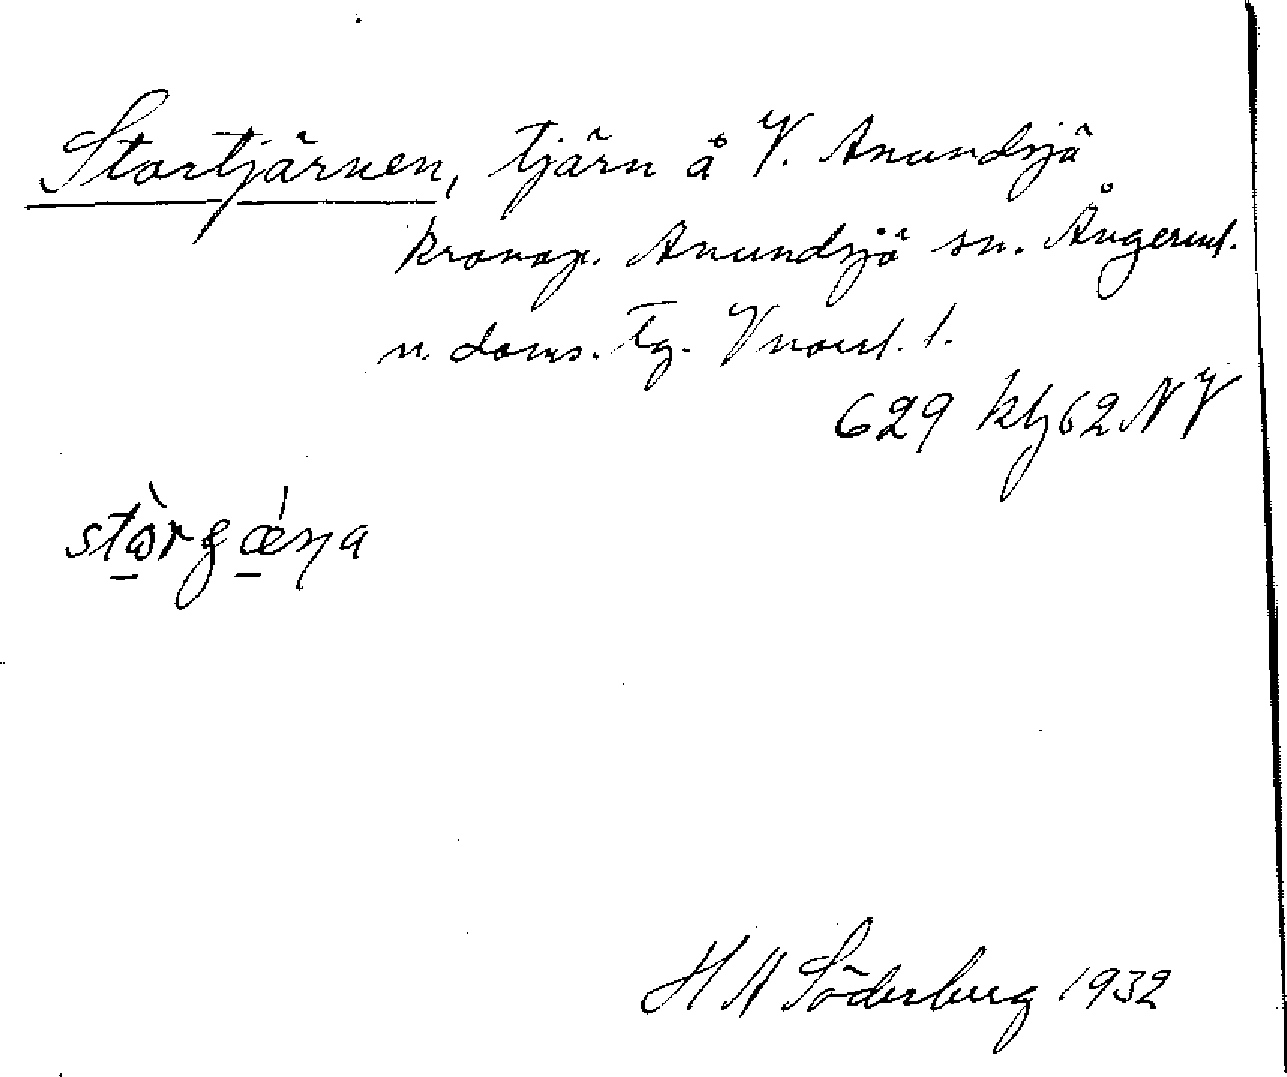 Stortjärnen, tjärn å V. Anundsjö
kronop. Anundsjö sn. Ångerml.
n. doms. Tg. Vnorrl. l.
629 kbl 62 NV
stòrgǽṇa
H A Söderberg 1932